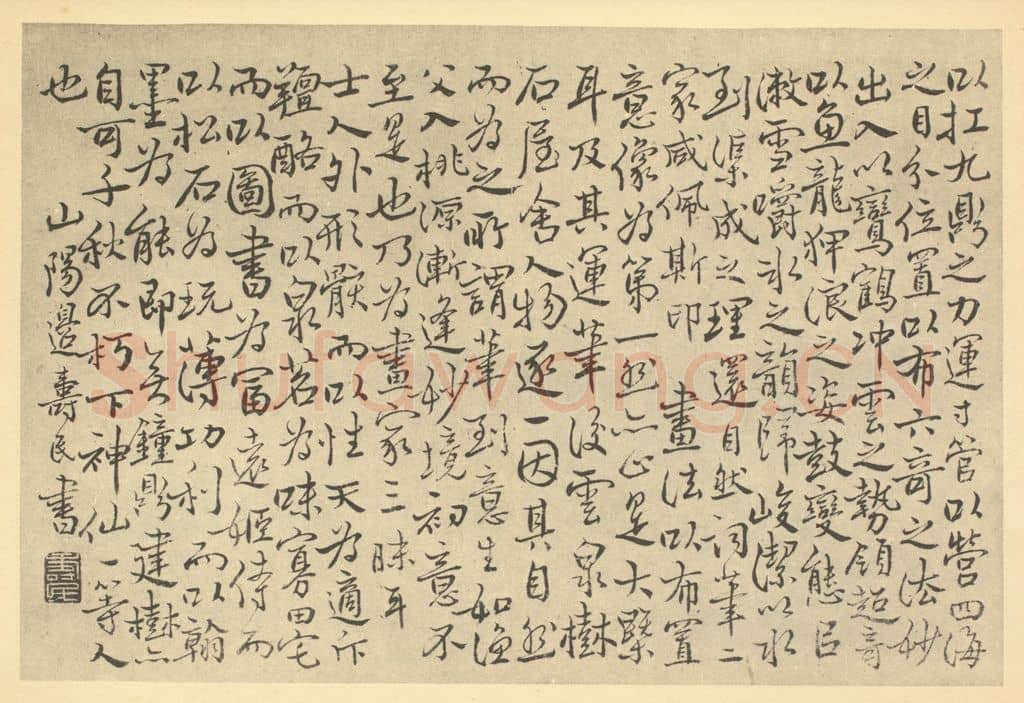 以扛九鼎之力運寸管以營四海
之目分位置以布六奇之法妙
出入以鸞鶴冲雲之勢領超奇
以魚龍狎浪之姿鼓變態以
漱雪嚼冰之韻歸峻潔以水
到渠成之理還自然词筆二
家咸佩斯印 畫法以布置
意像為第一然亦止是大槩
耳及其運筆後雲泉樹
石屋舍人物逐一因其自然
而為之所謂筆到意生如漁
父入桃源漸逢妙境初意不
至是也乃為畫家三昧耳
士人外形骸而以性天為適斥
羶酪而以泉茗為味寡田宅
而以圖書為富遠姬侍而
以松石為玩薄功利而以翰
墨為能即無鐘鼎建樹亦
自可千秋不朽下神仙一等人
也 山陽邉壽民書
Shufawang.CN